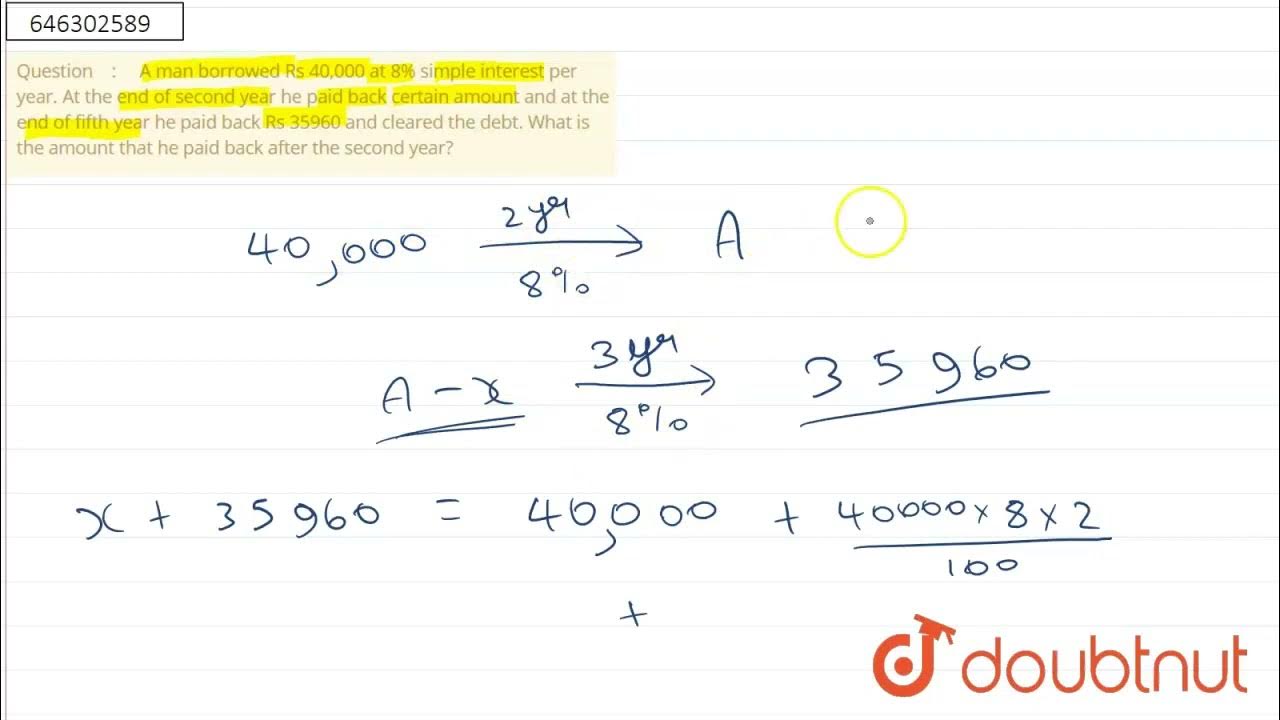 646302589
Question : A man borrowed Rs 40,000 at 8% simple interest per
year. At the end of second year he paid back certain amount and at the
end of fifth year he paid back Rs 35960 and cleared the debt. What is
the amount that he paid back after the second year?
2 yr
40,000 → A
8%
3 yr
A - x → 35960
8%
x + 35960 = 40,000 + 40000 x 8 x 2
100
+
doubtnut